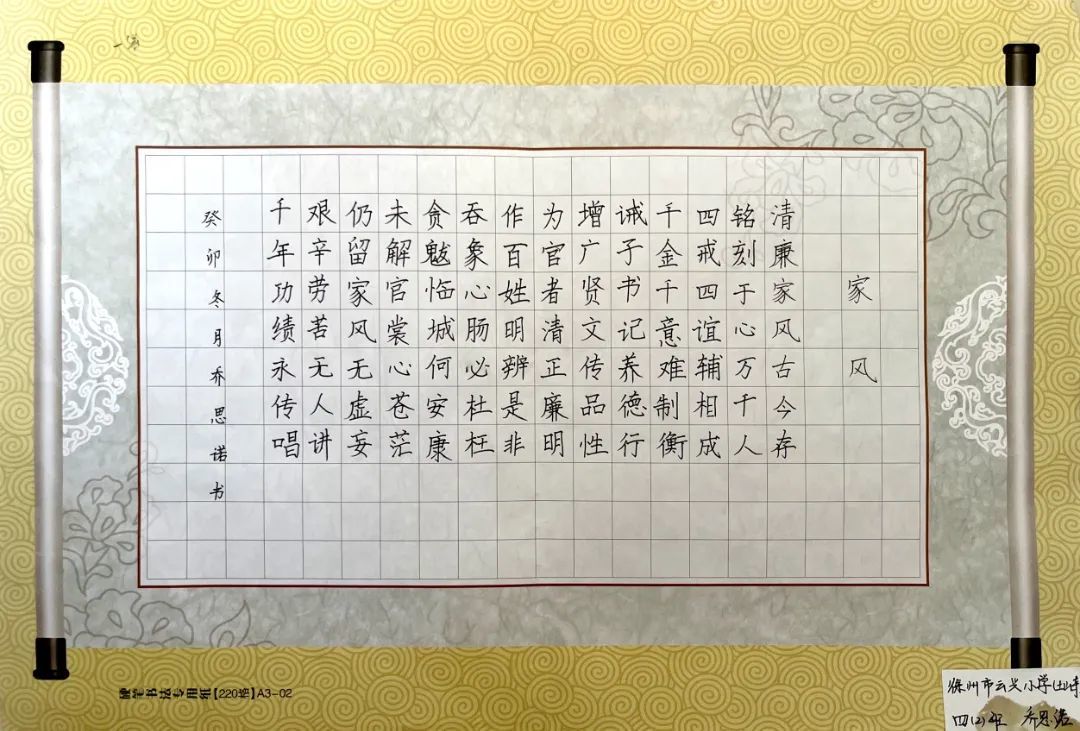 家风
清廉家风古今存
铭刻于心万千人
四戒四谊辅相成
千金千意难制衡
诫子书记养德行
增广贤文传品性
为官者清正廉明
作百姓明辨是非
吞象心肠必杜枉
贪魃临城何安康
未解官裳心苍茫
仍留家风无虚妄
艰辛劳苦无人讲
千年功绩永传唱
癸卯冬月乔思诺书
硬笔书法专用纸【220格】A3-02
徐州市云兴小学
四(2)班 乔思诺